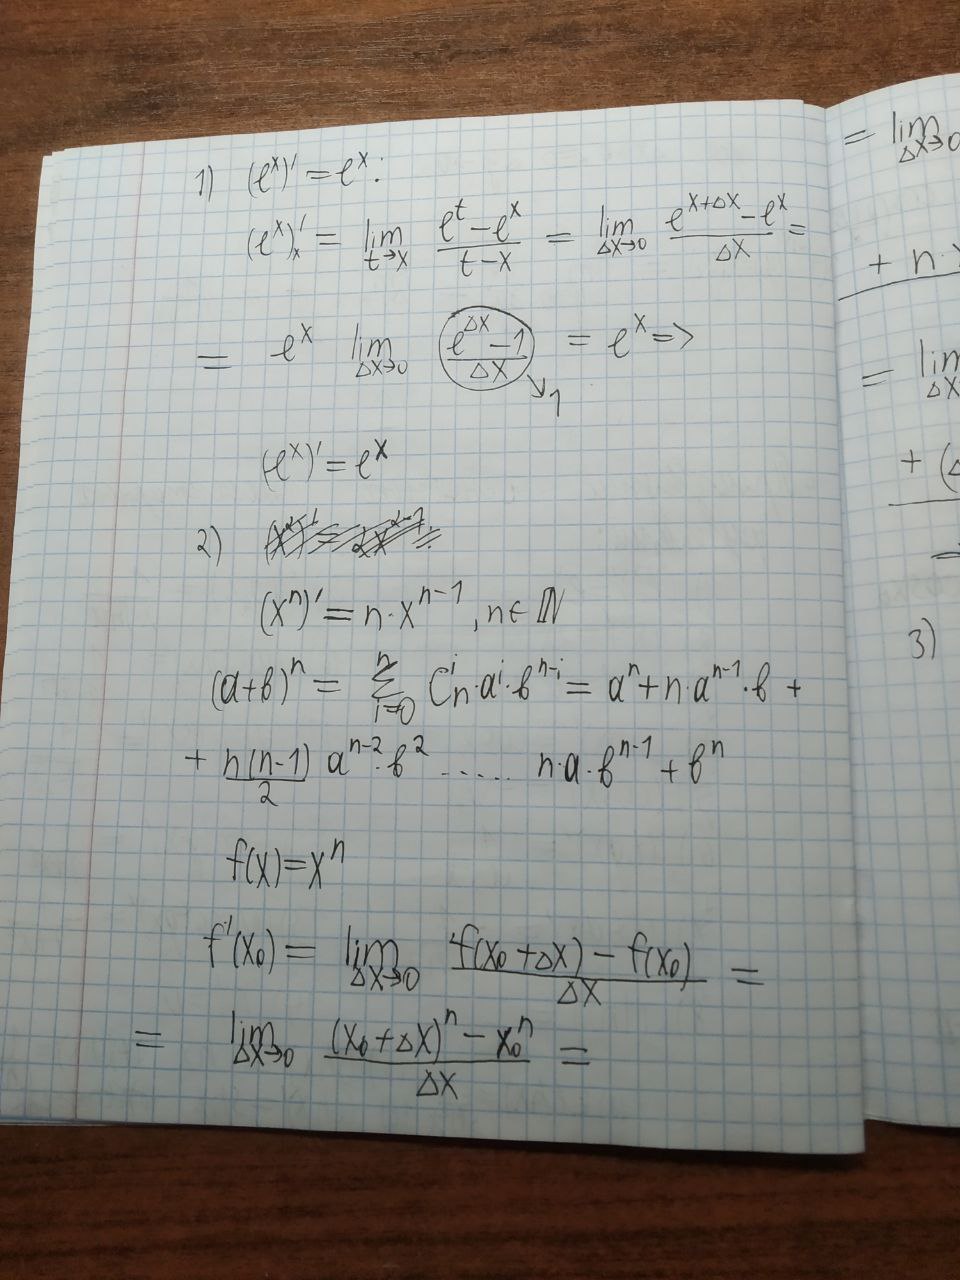 1) (e^x)' = e^x:
(e^x)'_x = lim_{t→x} (e^t − e^x)/(t−x) = lim_{Δx→0} (e^{x+Δx} − e^x)/Δx =
= e^x lim_{Δx→0} (e^{Δx} − 1)/Δx = e^x =>
↘1
(e^x)' = e^x
2)
(x^n)' = n·x^{n−1}, n∈ℕ
(a+b)^n = Σ_{i=0}^n C_n^i·a^i·b^{n−i} = a^n + n·a^{n−1}·b +
+ n(n−1)/2 a^{n−2}·b^2 ..... n·a·b^{n−1} + b^n
f(x)=x^n
f'(x₀) = lim_{Δx→0} (f(x₀+Δx) − f(x₀))/Δx =
= lim_{Δx→0} ((x₀+Δx)^n − x₀^n)/Δx =
= lim_{Δx→0}
+ n·
= lim_{Δx
+ (
3)